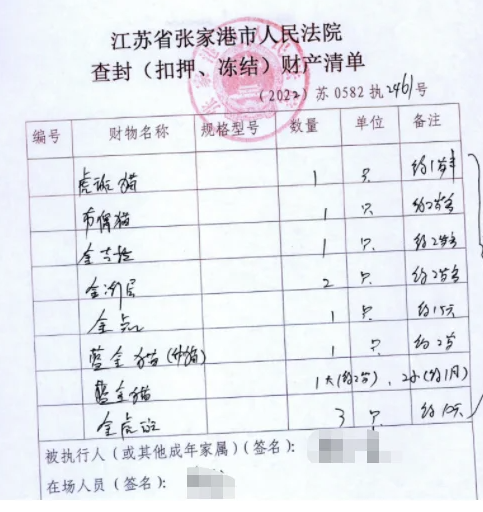 江苏省张家港市人民法院
查封（扣押、冻结）财产清单
（2022）苏 0582 执2461号
编号 财物名称 规格型号 数量 单位 备注
虎斑猫 1 只 约1岁半
布偶猫 1 只 约2岁多
金吉拉 1 只 约2岁多
金渐层 2 只 约2岁多
金点 1 只 约15天
蓝金猫 1 只 约2岁
蓝金猫 1大(约2岁)、2小(约1月)
金虎斑 3 只
被执行人（或其他成年家属）(签名)：
在场人员（签名）：